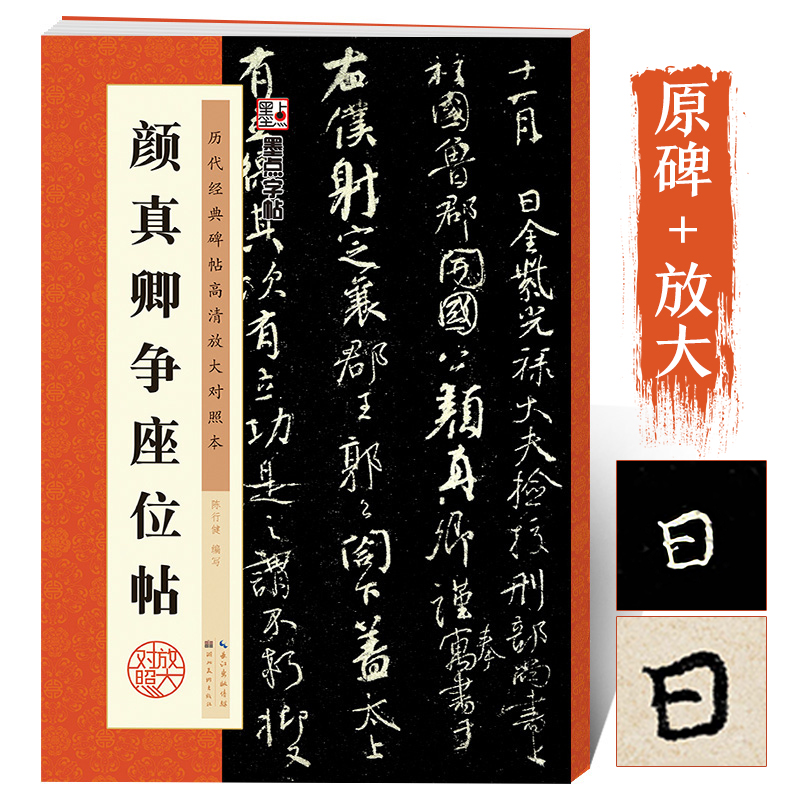 颜真卿争座位帖
历代经典碑帖高清放大对照本
陈行健 编写
放大对照
长江出版传媒
湖北美术出版社
墨点
墨点字帖
十一月 日金紫光禄大夫檢校刑部尚書上
柱國魯郡開國公顏真卿謹奉寓書于
右僕射定襄郡王郭公閤下蓋太上
有立德其次有立功是之謂不朽抑又
原碑+放大
日
日